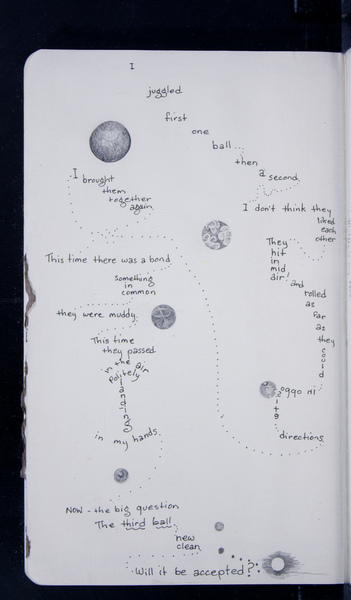 I
juggled
first
one
ball
then
a second.
I don't think they
liked
each
other
They
hit
in
mid
air
and
rolled
as
far
as
they
could
in oppo
site
directions
I brought
them
together
again
This time there was a bond
something
in
common
they were muddy.
This time
they passed
in the air
Politely
landing
in my hands.
NOW - the big question
The third ball,
new
clean
Will it be accepted?